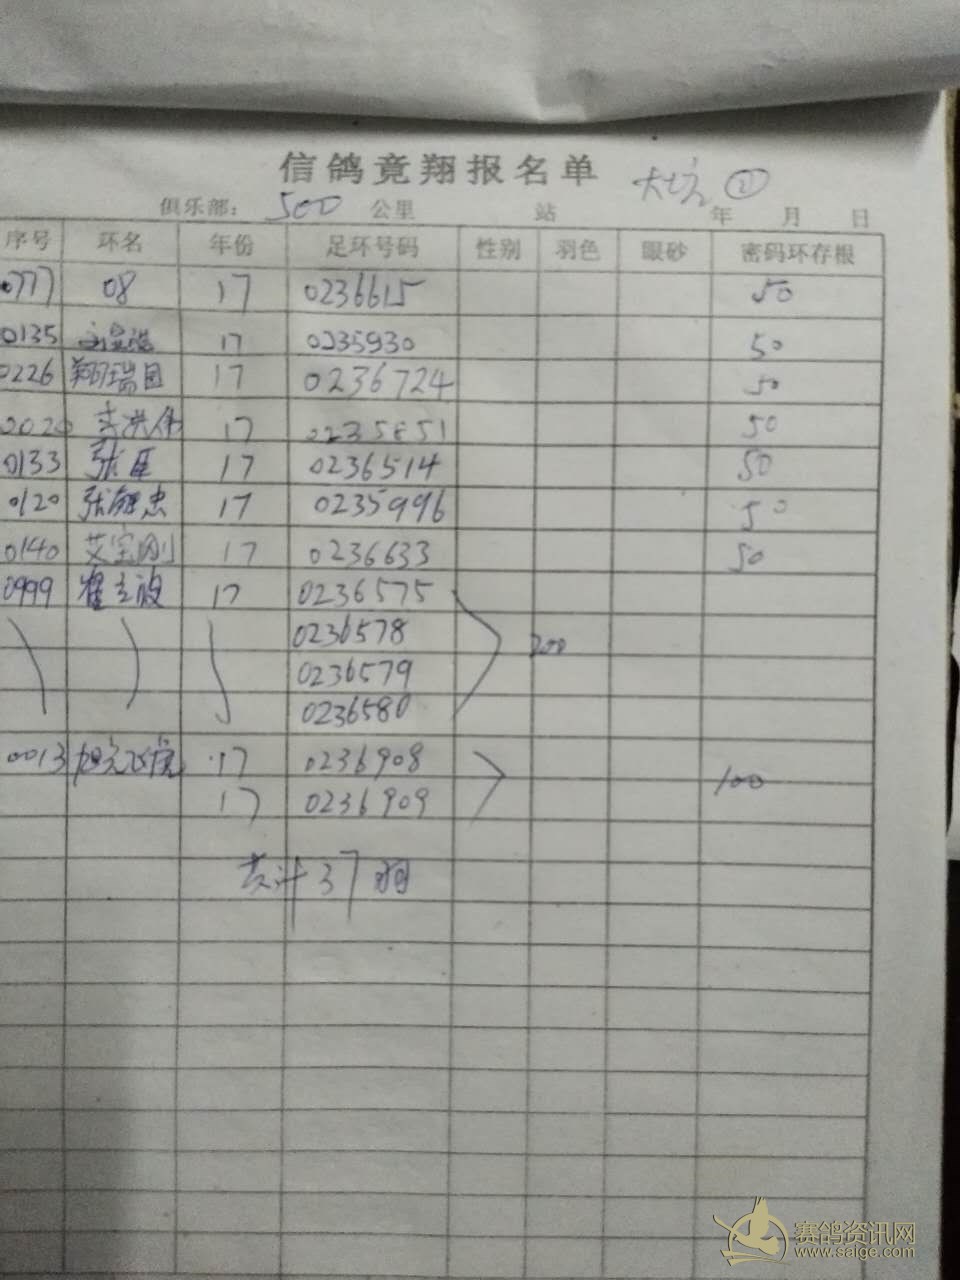 信鸽竞翔报名单 大坑 ②
俱乐部: 500 公里 站 年 月 日
序号 环名 年份 足环号码 性别 羽色 眼砂 密码环存根
0777 08 17 0236615 50
0135 17 0235930 50
0226 翔瑞园 17 0236724 50
李洪伟 17 0235851 50
0133 张臣 17 0236514 50
0120 张维忠 17 0235996 50
0140 艾宝刚 17 0236633 50
0999 霍立波 17 0236575
0236578 200
0236579
0236580
0013 17 0236908
17 0236909 100
共计37羽
赛鸽资讯网
www.saige.com